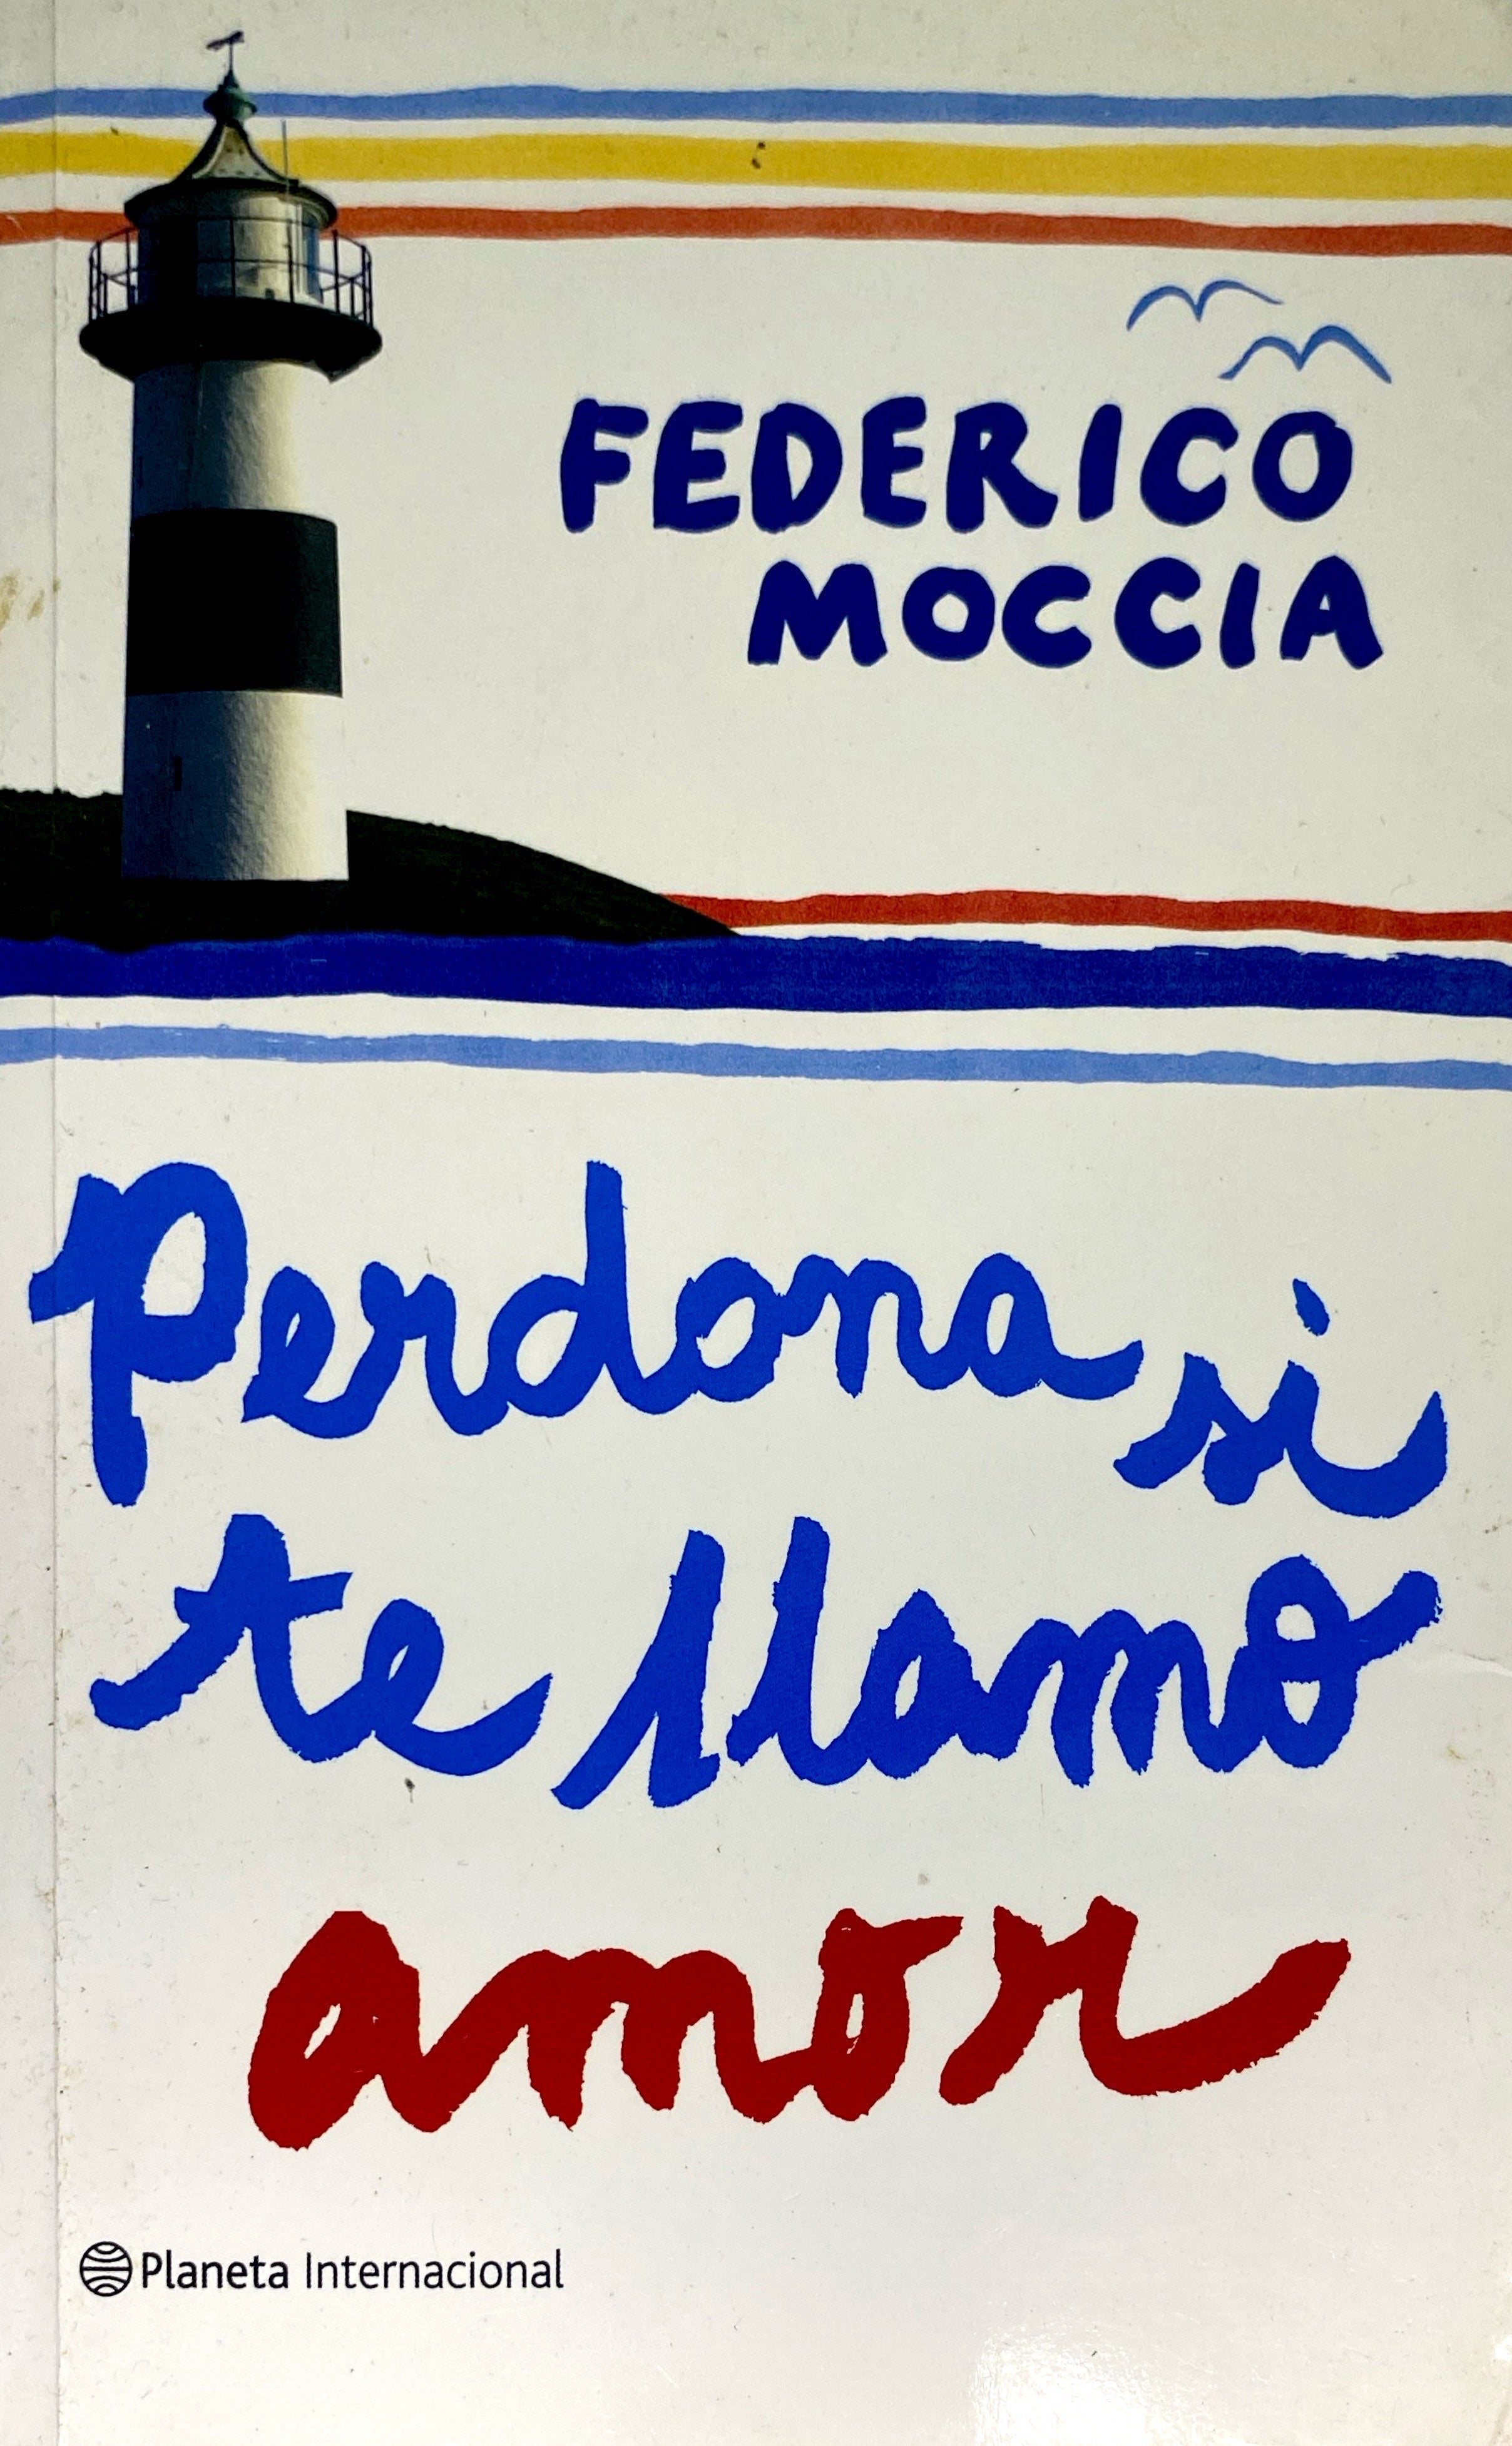 FEDERICO
MOCCIA
Perdona si
te llamo
amor
Planeta Internacional